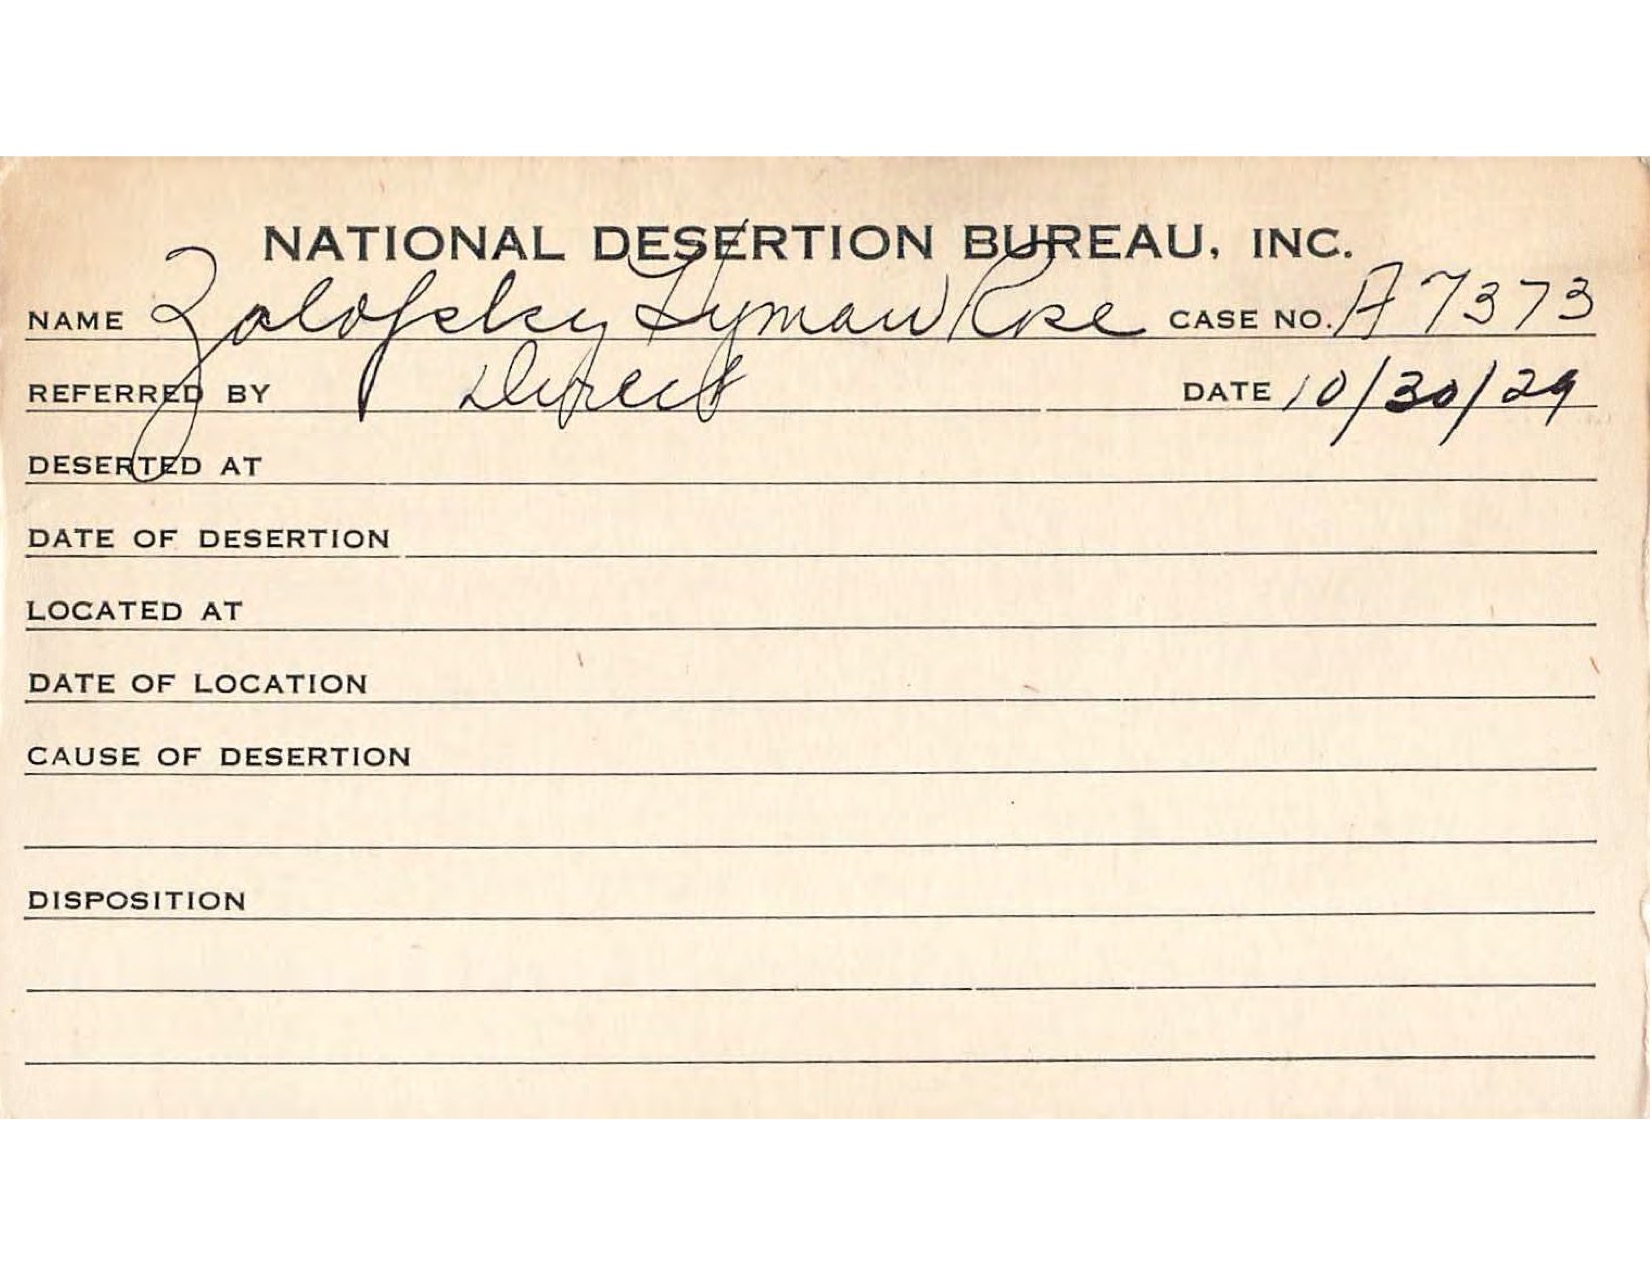 NATIONAL DESERTION BUREAU, INC.
NAME Zalofsky Hyman Rose CASE NO. A7373
REFERRED BY Direct DATE 10/30/29
DESERTED AT
DATE OF DESERTION
LOCATED AT
DATE OF LOCATION
CAUSE OF DESERTION
DISPOSITION